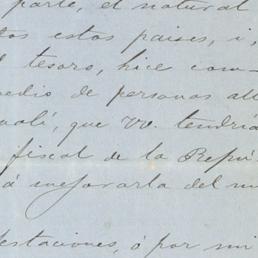 parte, el natural
tos estos paises, i,
l tesoro, hice com-
edio de personas all
valí, que VV. tendría
fiscal de la Repú
á mejorarla del m
estaciones, ó por mi